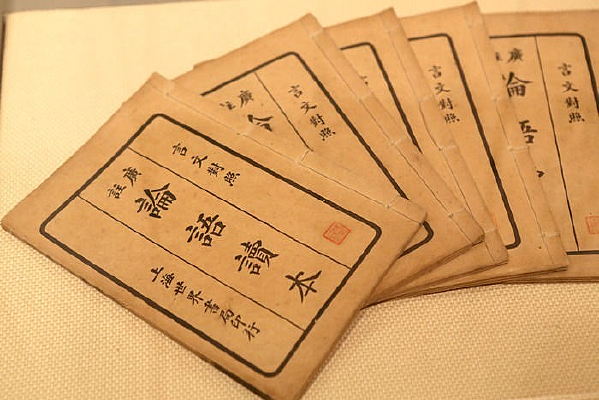 言文對照
廣註
論語讀本
上海世界書局印行
言文對照
廣註
論
言文對照
言文對照
廣註
論語